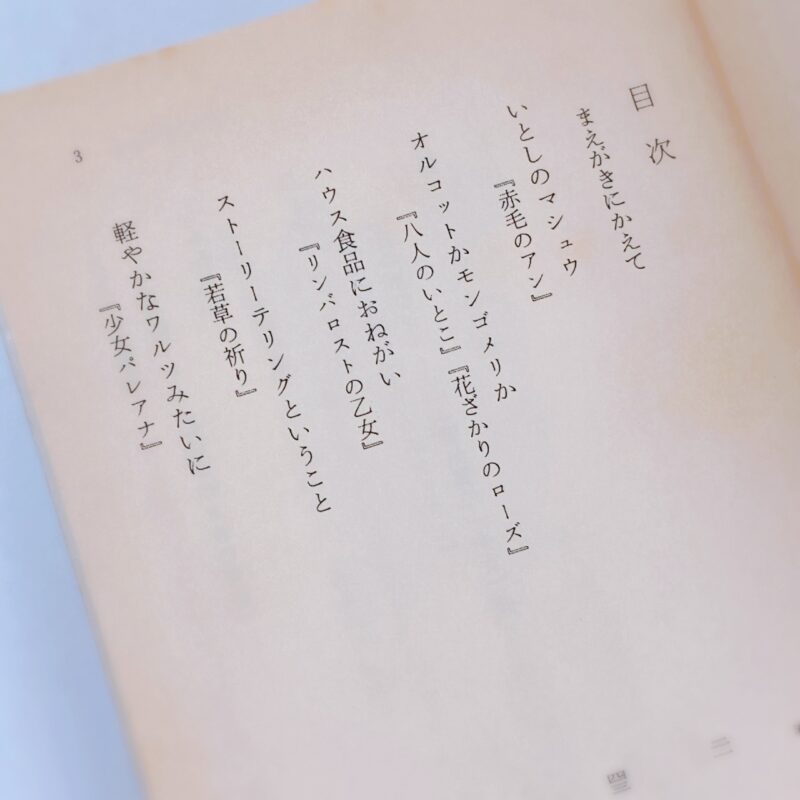 目次
まえがきにかえて
いとしのマシュウ
『赤毛のアン』
オルコットかモンゴメリか
『八人のいとこ』『花ざかりのローズ』
ハウス食品におねがい
『リンバロストの乙女』
ストーリーテリングということ
『若草の祈り』
軽やかなワルツみたいに
『少女パレアナ』
3